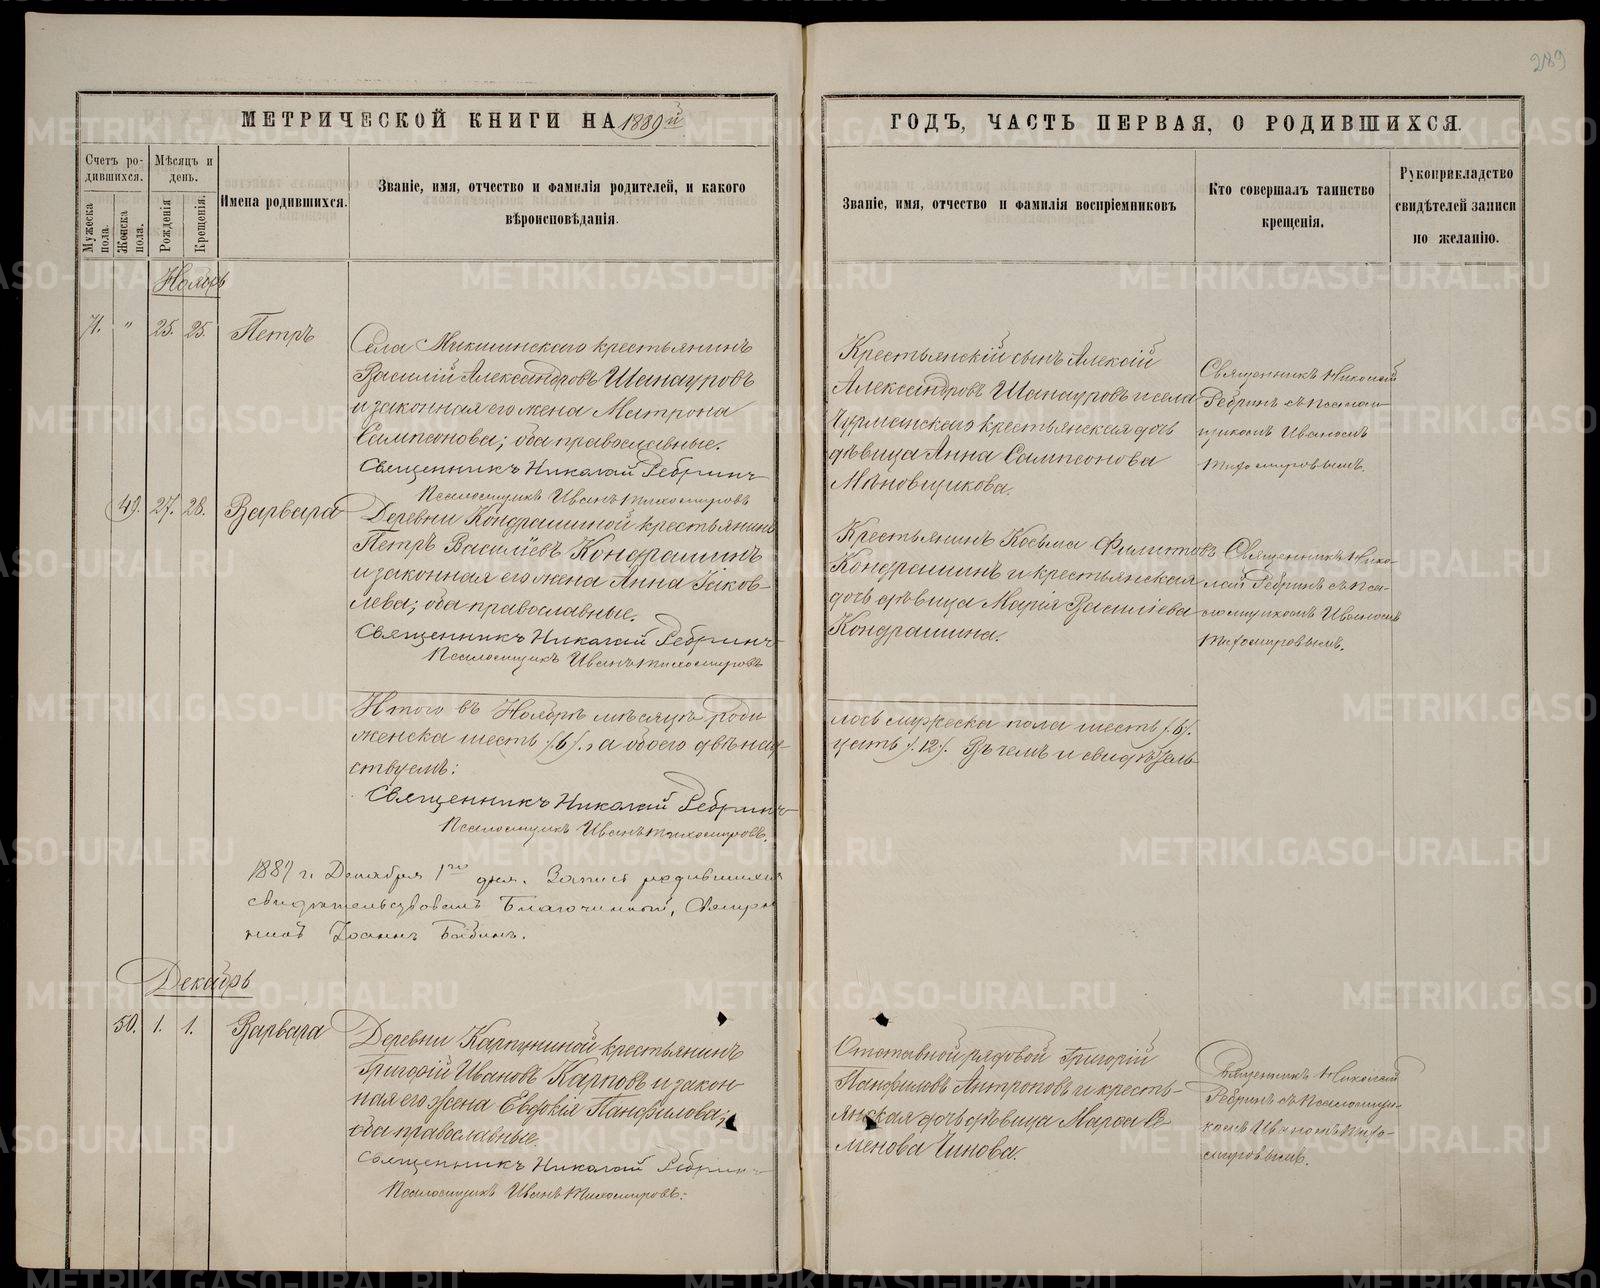 289
МЕТРИЧЕСКОЙ КНИГИ НА 1889й
ГОДЪ, ЧАСТЬ ПЕРВАЯ, О РОДИВШИХСЯ.
Счетъ ро-
дившихся.
Мужеска пола.
Женска пола.
Мѣсяцъ и
день.
Рожденія
Крещенія.
Имена родившихся.
Званіе, имя, отчество и фамилія родителей, и какого
вѣроисповѣданія.
Званіе, имя, отчество и фамилія воспріемниковъ
Кто совершалъ таинство
крещенія.
Рукоприкладство
свидѣтелей записи
по желанію.
Ноябрь
" 25. 25. Петръ
Села Микшинскаго крестьянинъ
Василій Александровъ Шанауровъ
и законная его жена Матрона
Сампсонова; оба православные.
Священникъ Николай Ребринъ
Псаломщикъ Иванъ Тихомировъ
Крестьянскій сынъ Алексій
Александровъ Шанауровъ и села
крестьянская дочь
дѣвица Анна Сампсонова
Мановщикова.
Священникъ Николай
Ребринъ съ Псалом-
щикомъ Иваномъ
Тихомировымъ.
49. 27. 28. Варвара
Деревни Кондрашиной крестьянинъ
Петръ Васильевъ Кондрашинъ
и законная его жена Анна Яков-
лева; оба православные.
Священникъ Николай Ребринъ
Псаломщикъ Иванъ Тихомировъ
Крестьянинъ Косьма Филиповъ
Кондрашинъ и крестьянская
дочь дѣвица Марія Васильева
Кондрашина.
Священникъ Нико-
лай Ребринъ съ Пса-
ломщикомъ Иваномъ
Тихомировымъ.
Итого въ Ноябрѣ мѣсяцѣ роди
лось мужеска пола шесть /6/.
женска шесть /6/., а обоего двѣнад-
цать /12/. Въ чемъ и свидѣтель-
ствуемъ:
Священникъ Николай Ребринъ
Псаломщикъ Иванъ Тихомировъ.
1889 г. Декабря 1го дня. Запись родившихся
свидѣтельствовалъ Благочинный, Священ
никъ Іоаннъ Бабинъ.
Декабрь
50. 1. 1. Варвара
Деревни Карпушиной крестьянинъ
Григорій Ивановъ Карповъ и закон-
ная его жена Евдокія Панфилова;
оба православные.
Священникъ Николай Ребринъ
Псаломщикъ Иванъ Тихомировъ.
Отставной рядовой Григорій
Панфиловъ Антроповъ и кресть-
янская дочь дѣвица Марѳа Се-
менова Чинова.
Священникъ Николай
Ребринъ съ Псаломщи-
комъ Иваномъ Тихо-
мировымъ.
METRIKI.GASO-URAL.RU